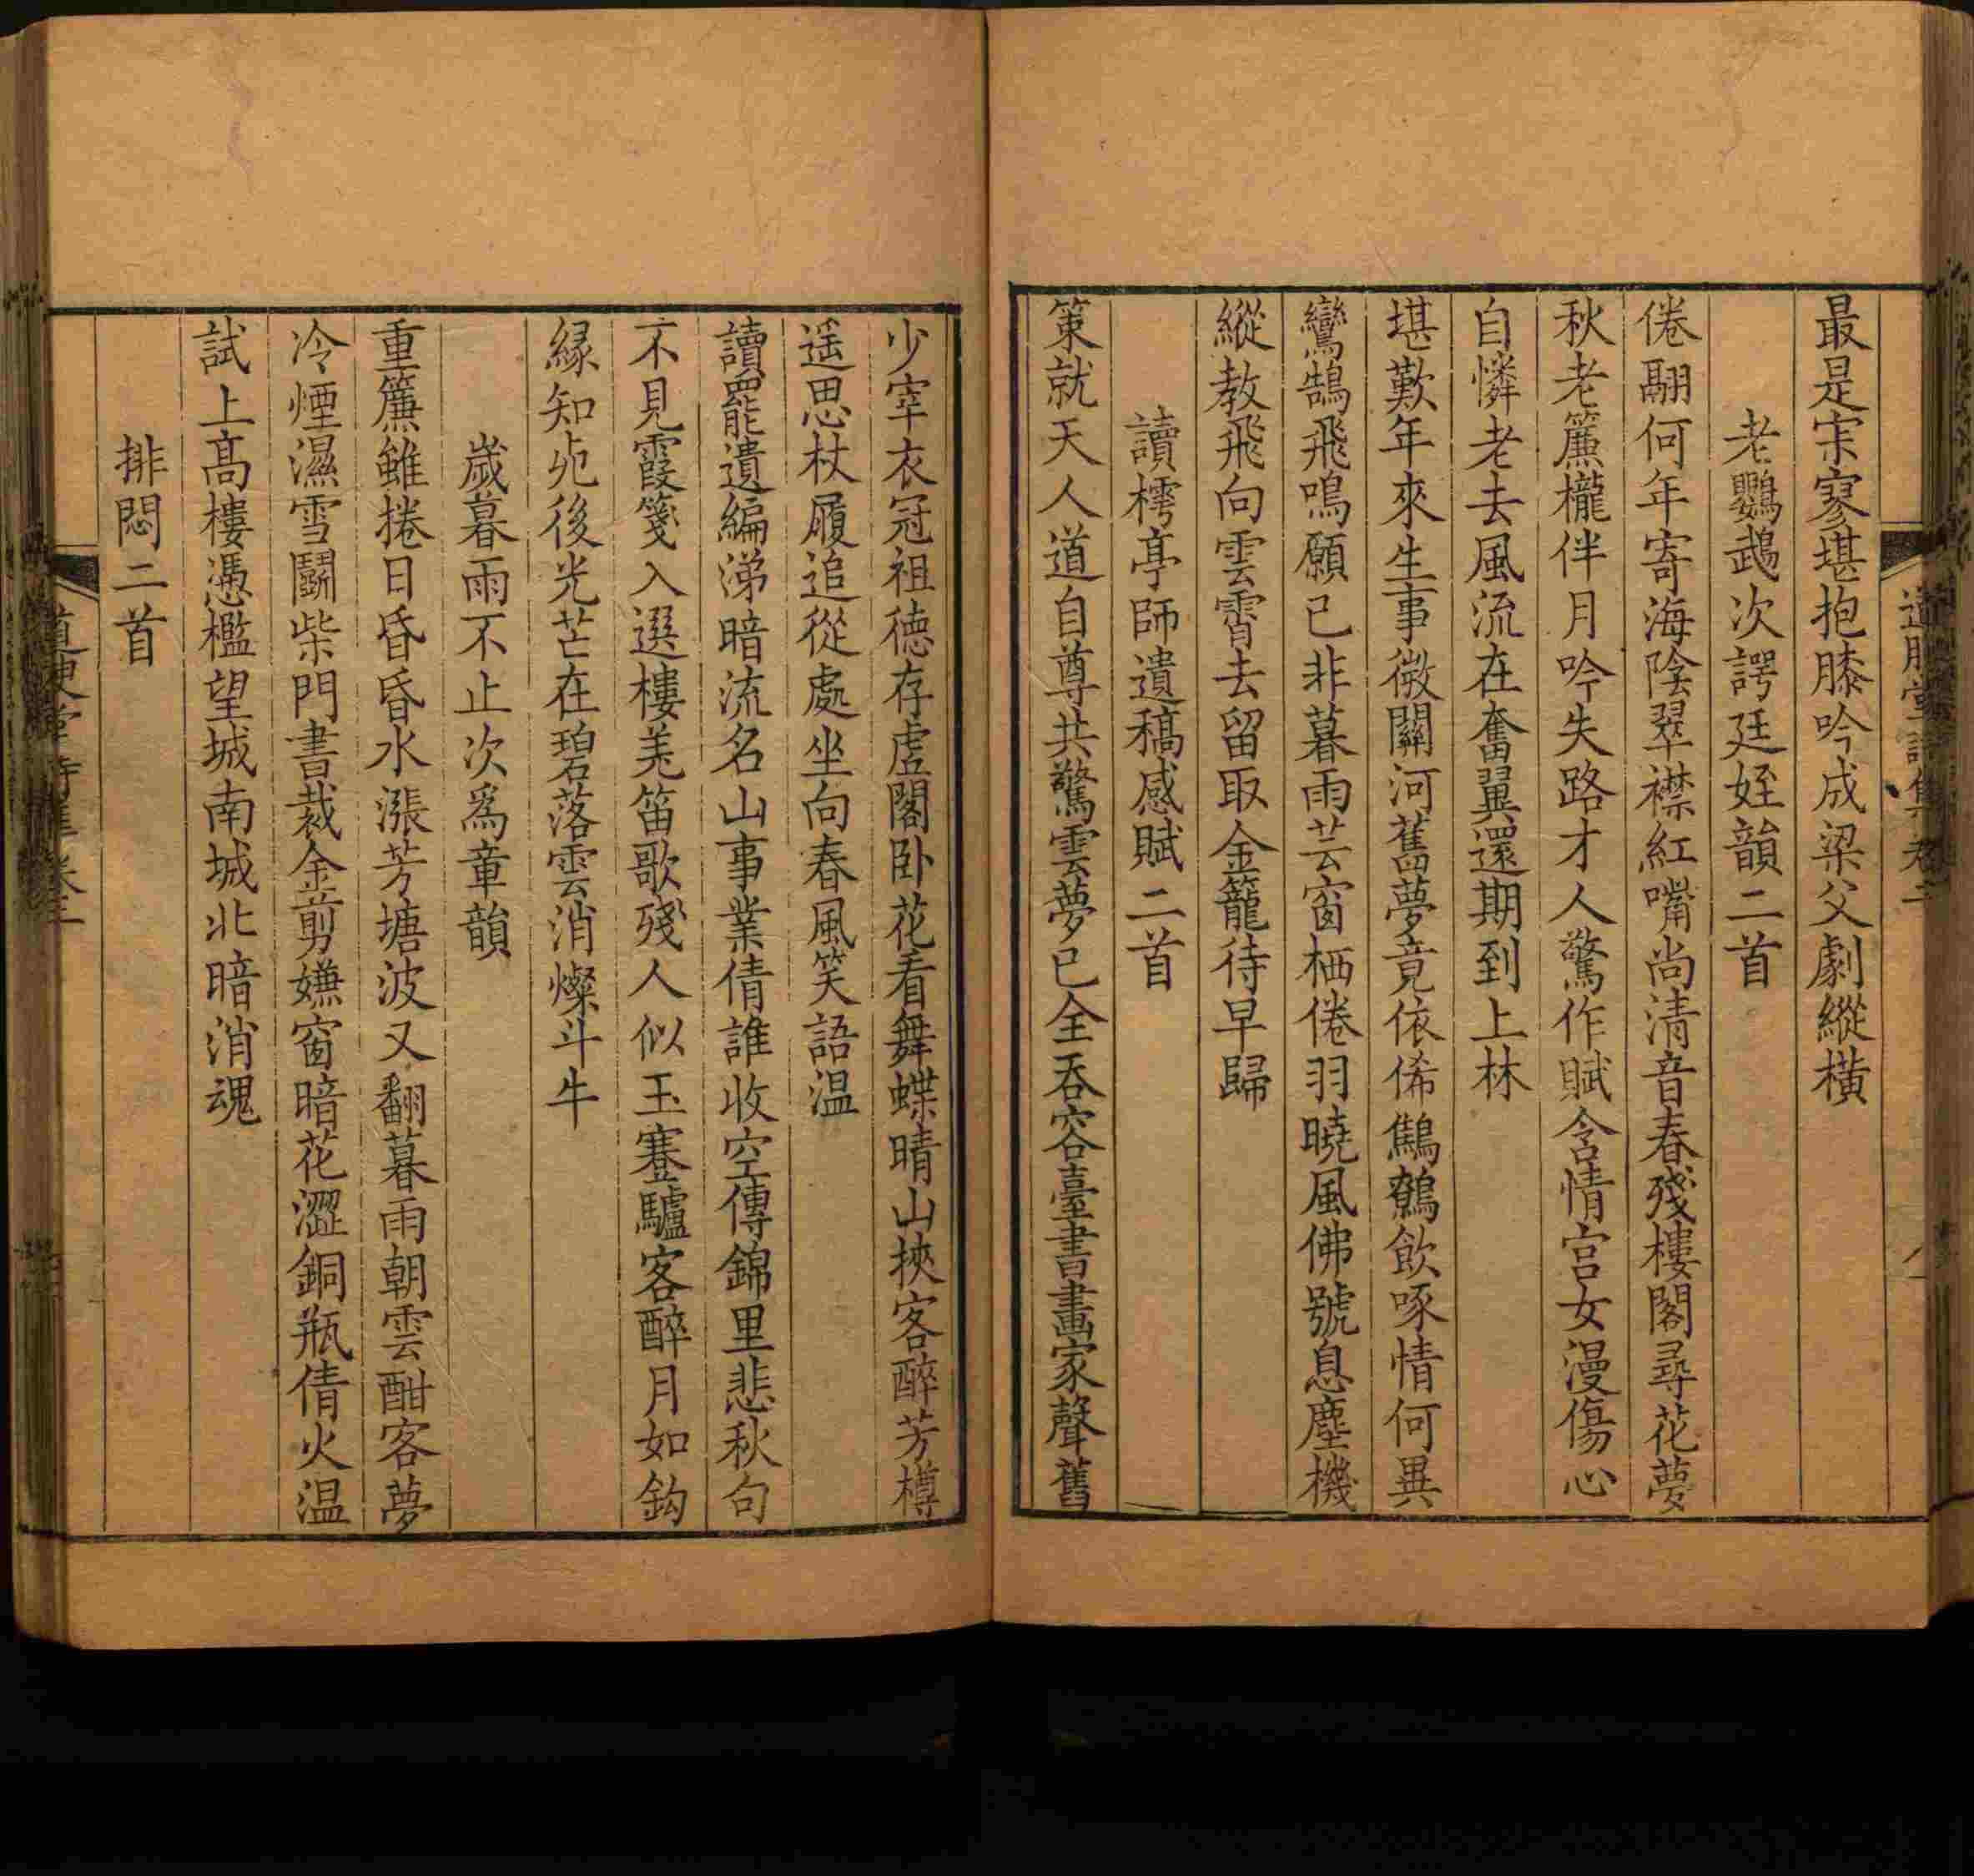 最是宋寥堪抱膝吟成梁父劇縱橫
老鸚鵡次諤廷姪韻二首
倦翮何年寄海陰翠襟紅嘴尚清音春殘樓閣尋花夢
秋老簾櫳伴月吟失路才人驚作賦含情宫女漫傷心
自憐老去風流在奮翼還期到上林
堪歎年來生事微關河舊夢竟依俙鷦鷯飲啄情何異
鸞鵠飛鳴願已非暮雨芸窗栖倦羽曉風佛號息塵機
縱教飛向雲霄去留取金籠待早歸
讀樗亭師遺稿感賦二首
策就天人道自尊共驚雲夢已全吞容臺書畫家聲舊
少宰衣冠祖德存虛閣卧花看舞蝶晴山挾客醉芳樽
遥思杖履追從處坐向春風笑語温
讀罷遺編涕暗流名山事業倩誰收空傳錦里悲秋句
不見霞箋入選樓羌笛歌殘人似玉蹇驢客醉月如鈎
緣知死後光芒在碧落雲消燦斗牛
歲暮雨不止次爲章韻
重簾雖捲日昏昏水漲芳塘波又翻暮雨朝雲酣客夢
冷煙濕雪鬭柴門書裁金剪嫌窗暗花澀銅瓶倩火温
試上高樓憑檻望城南城北暗消魂
排悶二首